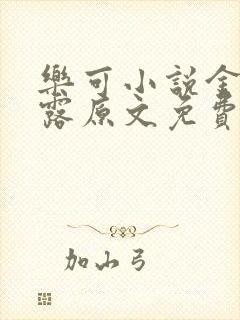 樂可小説金
露原文免費
加山弓